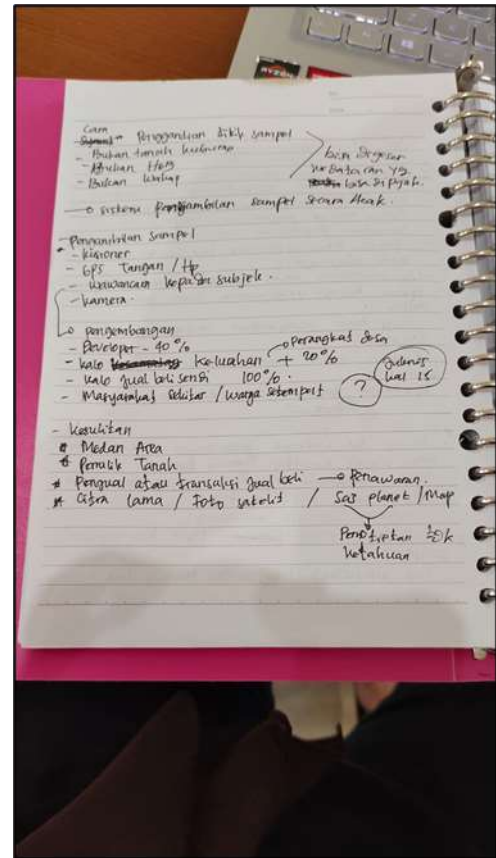 RYZEN
Cara
Penggandian titik sampel
- Bukan tanah kuburan
- Bukan HGB
- Bukan Wakap
bisa digeser
ke dataran yg
bisa di pijak.
sistem pengambilan sampel secara Acak.
- Pengambilan sampel
- Kisioner
- GPS Tangan / Hp
- wawancara kepada subjek.
- kamera.
pengembangan
- Developer - 40 %
- kalo Keluahan + 20 %
perangkat desa
- kalo jual beli sensi 100 %.
- Masyarakat sekitar / warga setempat
?
hal 15
- Kesulitan
* Medan Area
* Pemilik Tanah
* Pengual atau transaksi jual beli Penawaran.
* Citra lama / Foto satelit / Sas planet / Map
ketahuan